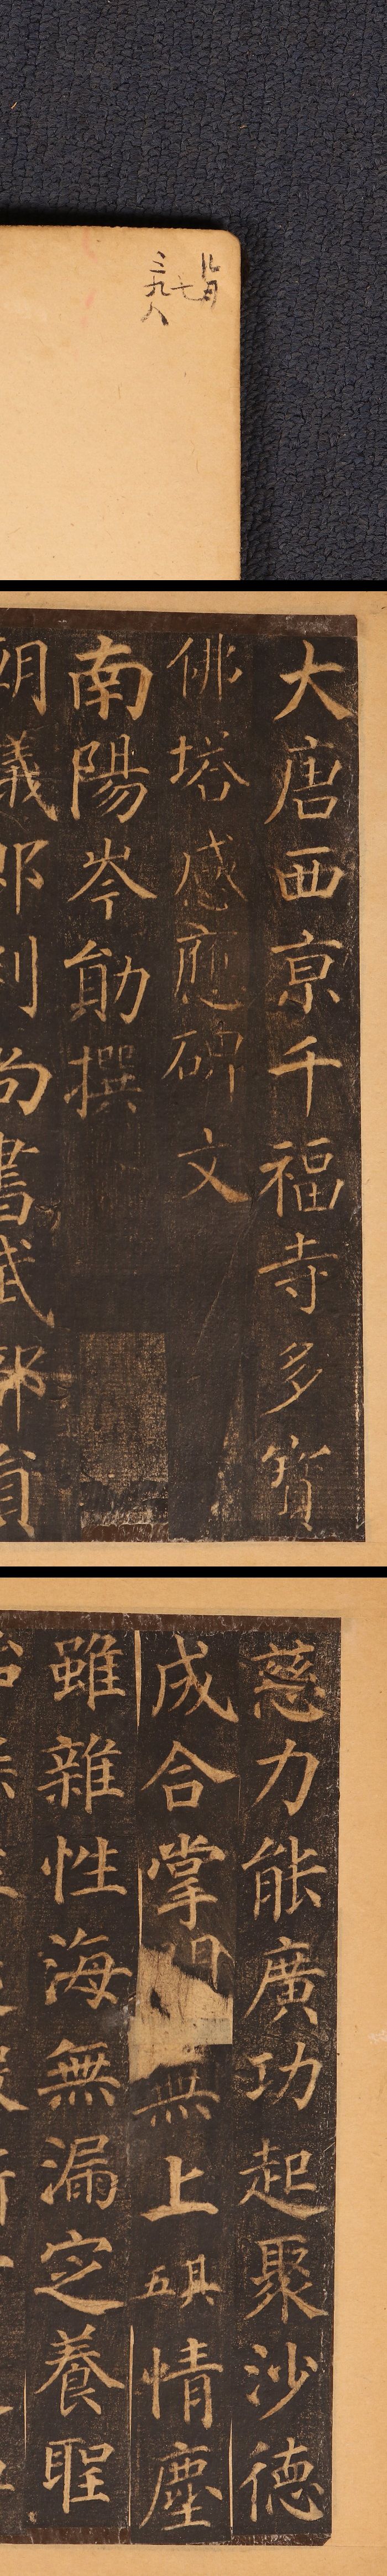 三九八
大唐西京千福寺多寶
佛塔感應碑文
南陽岑勛撰
朝議郎判尚書武部員
慈力能廣功起聚沙德
成合掌開無上
情塵
雖雜性海無漏定養聖